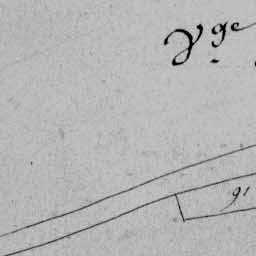 Vge
91